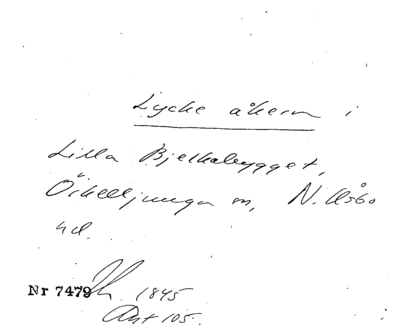 Lycke åkern i
Lilla Bjelkabygget,
Örkelljunga sn, N. Åsbo
hd.
Nr 7479 1845
Ant 105.